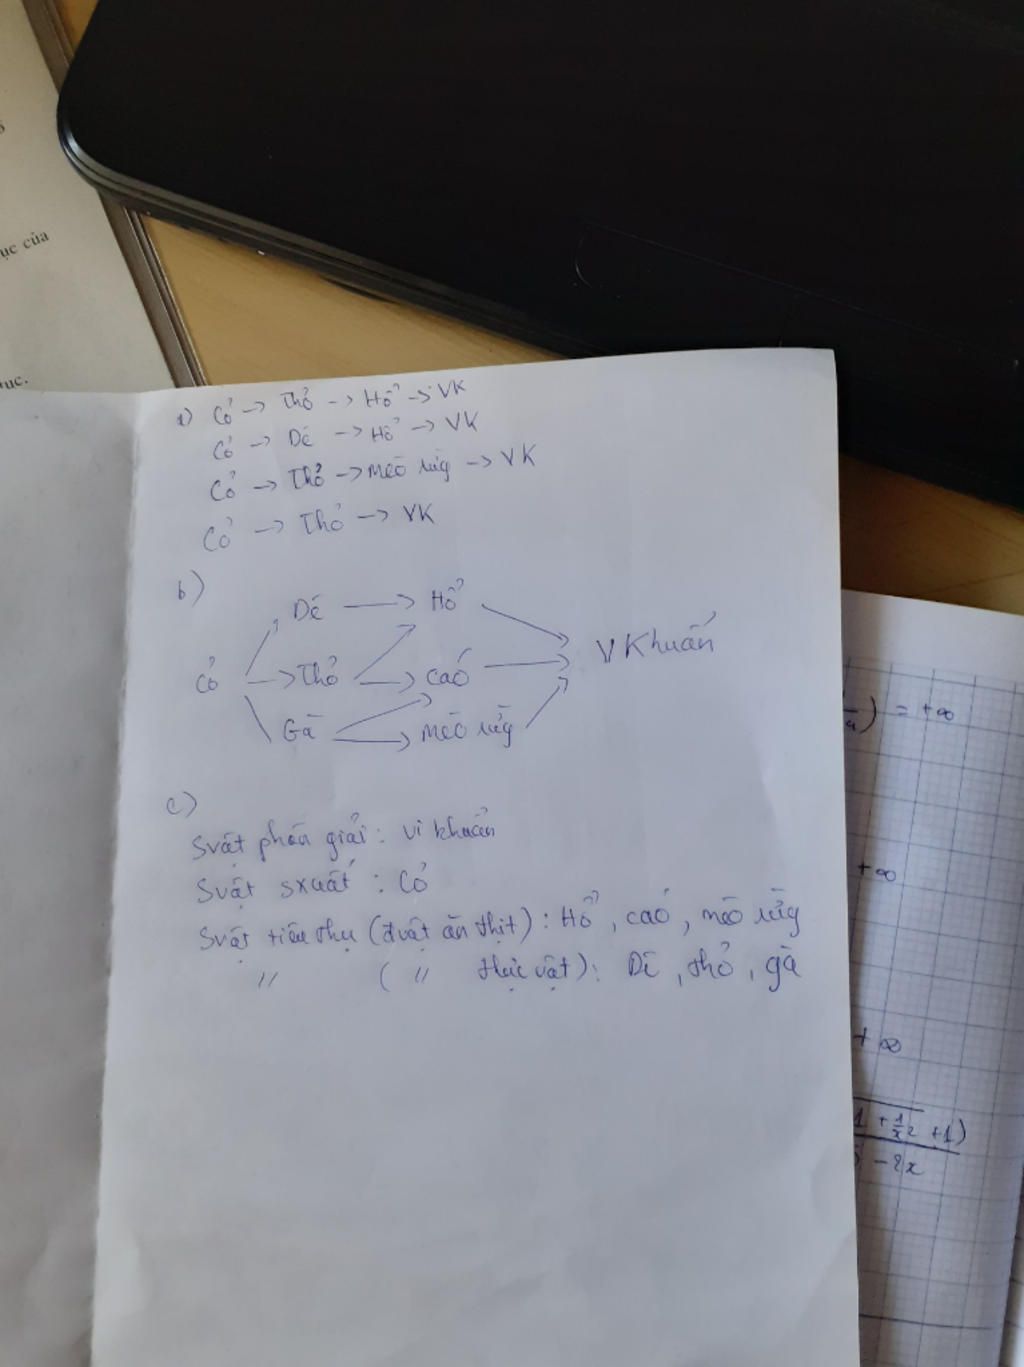 ục của
ục.
a) Cỏ → Thỏ → Hổ → VK
Cỏ → Dê → Hổ → VK
Cỏ → Thỏ → Mèo rừg → VK
Cỏ → Thỏ → VK
b)
Dê → Hổ
Cỏ → Thỏ → Cáo → VKhuẩn
Gà → Mèo rừg
c)
Svật phân giải : vi khuẩn
Svật sxuất : Cỏ
Svật tiêu thụ (đvật ăn thịt) : Hổ, cáo, mèo rừg
〃 ( 〃 thực vật) : Dê, thỏ, gà
) = +∞
+∞
+∞
1 + 1/x² + 1)
- 2x